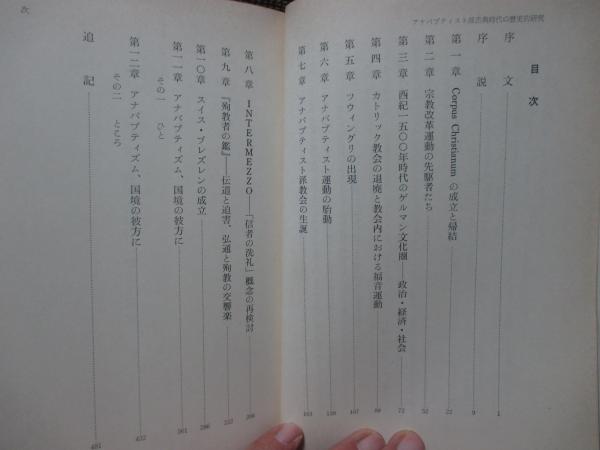 アナバプティスト派古典時代の歴史的研究
目次
序文 1
序説 9
第一章 Corpus Christianum の成立と帰結 22
第二章 宗教改革運動の先駆者たち 52
第三章 西紀一五〇〇年時代のゲルマン文化圏——政治・経済・社会—— 72
第四章 カトリック教会の退廃と教会内における福音運動
第五章 ツウィングリの出現 107
第六章 アナバプティスト運動の胎動
第七章 アナバプティスト派教会の生誕
次
第八章 INTERMEZZO——「信者の洗礼」概念の再検討
第九章 『殉教者の鑑』——伝道と迫害、弘通と殉教の交響楽
第一〇章 スイス・ブレズレンの成立 286
第一一章 アナバプティズム、国境の彼方に 361
その一 ひと
第一二章 アナバプティズム、国境の彼方に 432
その二 ところ
追記 481